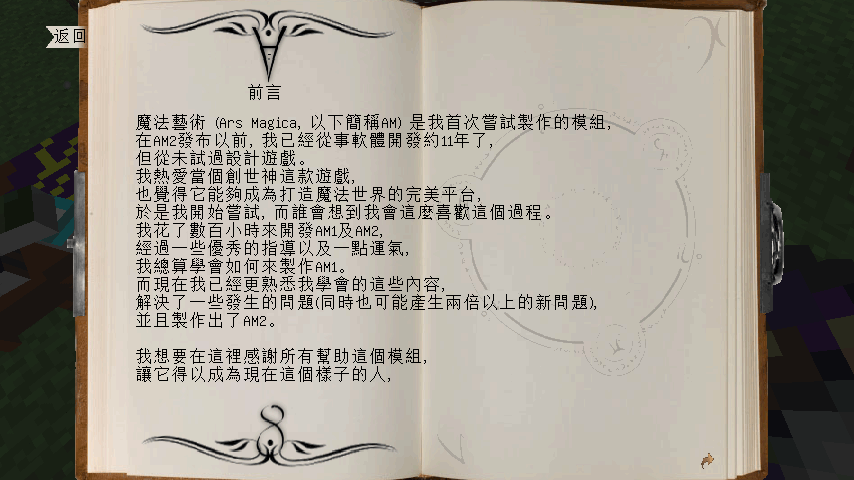 返回
前言
魔法藝術 (Ars Magica, 以下簡稱AM) 是我首次嘗試製作的模組,
在AM2發布以前, 我已經從事軟體開發約11年了,
但從未試過設計遊戲。
我熱愛當個創世神這款遊戲,
也覺得它能夠成為打造魔法世界的完美平台,
於是我開始嘗試, 而誰會想到我會這麼喜歡這個過程。
我花了數百小時來開發AM1及AM2,
經過一些優秀的指導以及一點運氣,
我總算學會如何來製作AM1。
而現在我已經更熟悉我學會的這些內容,
解決了一些發生的問題(同時也可能產生兩倍以上的新問題),
並且製作出了AM2。
我想要在這裡感謝所有幫助這個模組,
讓它得以成為現在這個樣子的人,